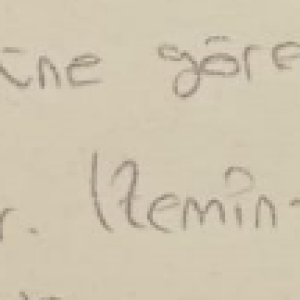 ine göre
r. (Zemin-